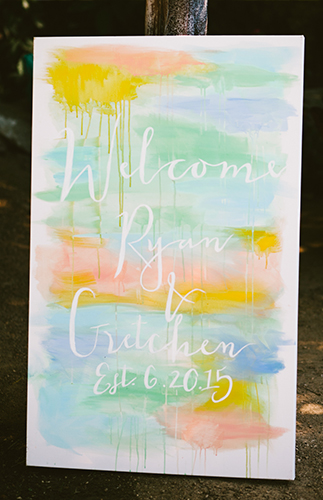 Welcome
Ryan
&
Gretchen
Est. 6.20.15